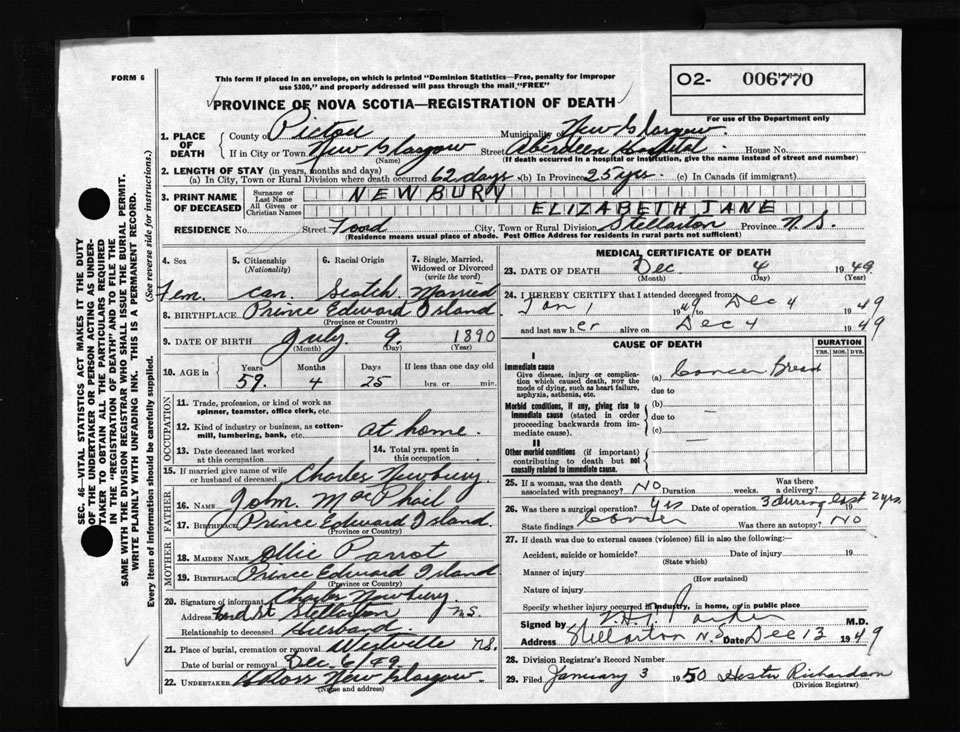 FORM 6
This form if placed in an envelope, on which is printed "Dominion Statistics—Free, penalty for improper
use $300," and properly addressed will pass through the mail "FREE"
PROVINCE OF NOVA SCOTIA—REGISTRATION OF DEATH
O2- 006770
For use of the Department only
1. PLACE OF DEATH
County of Pictou Municipality of New Glasgow
If in City or Town New Glasgow Street Aberdeen Hospital House No.
(Name) (If death occurred in a hospital or institution, give the name instead of street and number)
2. LENGTH OF STAY (in years, months and days)
(a) In City, Town or Rural Division where death occurred 62 days (b) In Province 25 yrs. (c) In Canada (if immigrant)
3. PRINT NAME OF DECEASED
Surname or Last Name NEWBURY
All Given or Christian Names ELIZABETH JANE
RESIDENCE No. Street Foord City, Town or Rural Division Stellarton Province N.S.
(Residence means usual place of abode. Post Office Address for residents in rural parts not sufficient)
4. Sex Fem.
5. Citizenship (Nationality) Can.
6. Racial Origin Scotch
7. Single, Married, Widowed or Divorced (write the word) Married
8. BIRTHPLACE Prince Edward Island
(Province or Country)
9. DATE OF BIRTH July 9. 1890
(Month) (Day) (Year)
10. AGE in Years Months Days If less than one day old
59. 4 25 hrs. or min.
OCCUPATION
11. Trade, profession, or kind of work as spinner, teamster, office clerk, etc.
12. Kind of industry or business, as cotton-mill, lumbering, bank, etc. at home.
13. Date deceased last worked at this occupation
14. Total yrs. spent in this occupation
15. If married give name of wife or husband of deceased Charles Newbury
FATHER
16. NAME John. MacPhail
17. BIRTHPLACE Prince Edward Island.
(Province or Country)
MOTHER
18. MAIDEN NAME Ollie Parrot
19. BIRTHPLACE Prince Edward Island
(Province or Country)
20. Signature of informant Charles Newbury
Address Foord St Stellarton N.S.
Relationship to deceased Husband.
21. Place of burial, cremation or removal Westville N.S.
Date of burial or removal Dec. 6/49
22. UNDERTAKER New Glasgow.
(Name and address)
MEDICAL CERTIFICATE OF DEATH
23. DATE OF DEATH Dec 4 1949
(Month) (Day) (Year)
24. I HEREBY CERTIFY that I attended deceased from:
Jan 1 1949 to Dec 4 1949
and last saw her alive on Dec 4 1949
CAUSE OF DEATH
DURATION
YRS. MOS. DYS.
I
Immediate cause
Give disease, injury or complication which caused death, NOT the mode of dying, such as heart failure, asphyxia, asthenia, etc.
(a) Cancer Breast
due to
Morbid conditions, if any, giving rise to immediate cause (stated in order proceeding backwards from immediate cause).
(b) —
due to —
(c)
II
Other morbid conditions (if important) contributing to death but not causally related to immediate cause. —
25. If a woman, was the death associated with pregnancy? NO Duration weeks. Was there a delivery?
26. Was there a surgical operation? Yes Date of operation 3 during last 2 yrs. 19
State findings Cancer Was there an autopsy? NO
27. If death was due to external causes (violence) fill in also the following:—
Accident, suicide or homicide? Date of injury 19
(State which)
Manner of injury
(How sustained)
Nature of injury
Specify whether injury occurred in industry, in home, or in public place
Signed by Parker M.D.
Address Stellarton N.S. Date Dec 13 1949
28. Division Registrar's Record Number
29. Filed January 3 1950 Hester Richardson
(Division Registrar)
SEC. 46—VITAL STATISTICS ACT MAKES IT THE DUTY
OF THE UNDERTAKER OR PERSON ACTING AS UNDER-
TAKER TO OBTAIN ALL THE PARTICULARS REQUIRED
IN THE "REGISTRATION OF DEATH" AND TO FILE THE
SAME WITH THE DIVISION REGISTRAR WHO SHALL ISSUE THE BURIAL PERMIT.
WRITE PLAINLY WITH UNFADING INK. THIS IS A PERMANENT RECORD.
Every item of information should be carefully supplied. (See reverse side for instructions.)